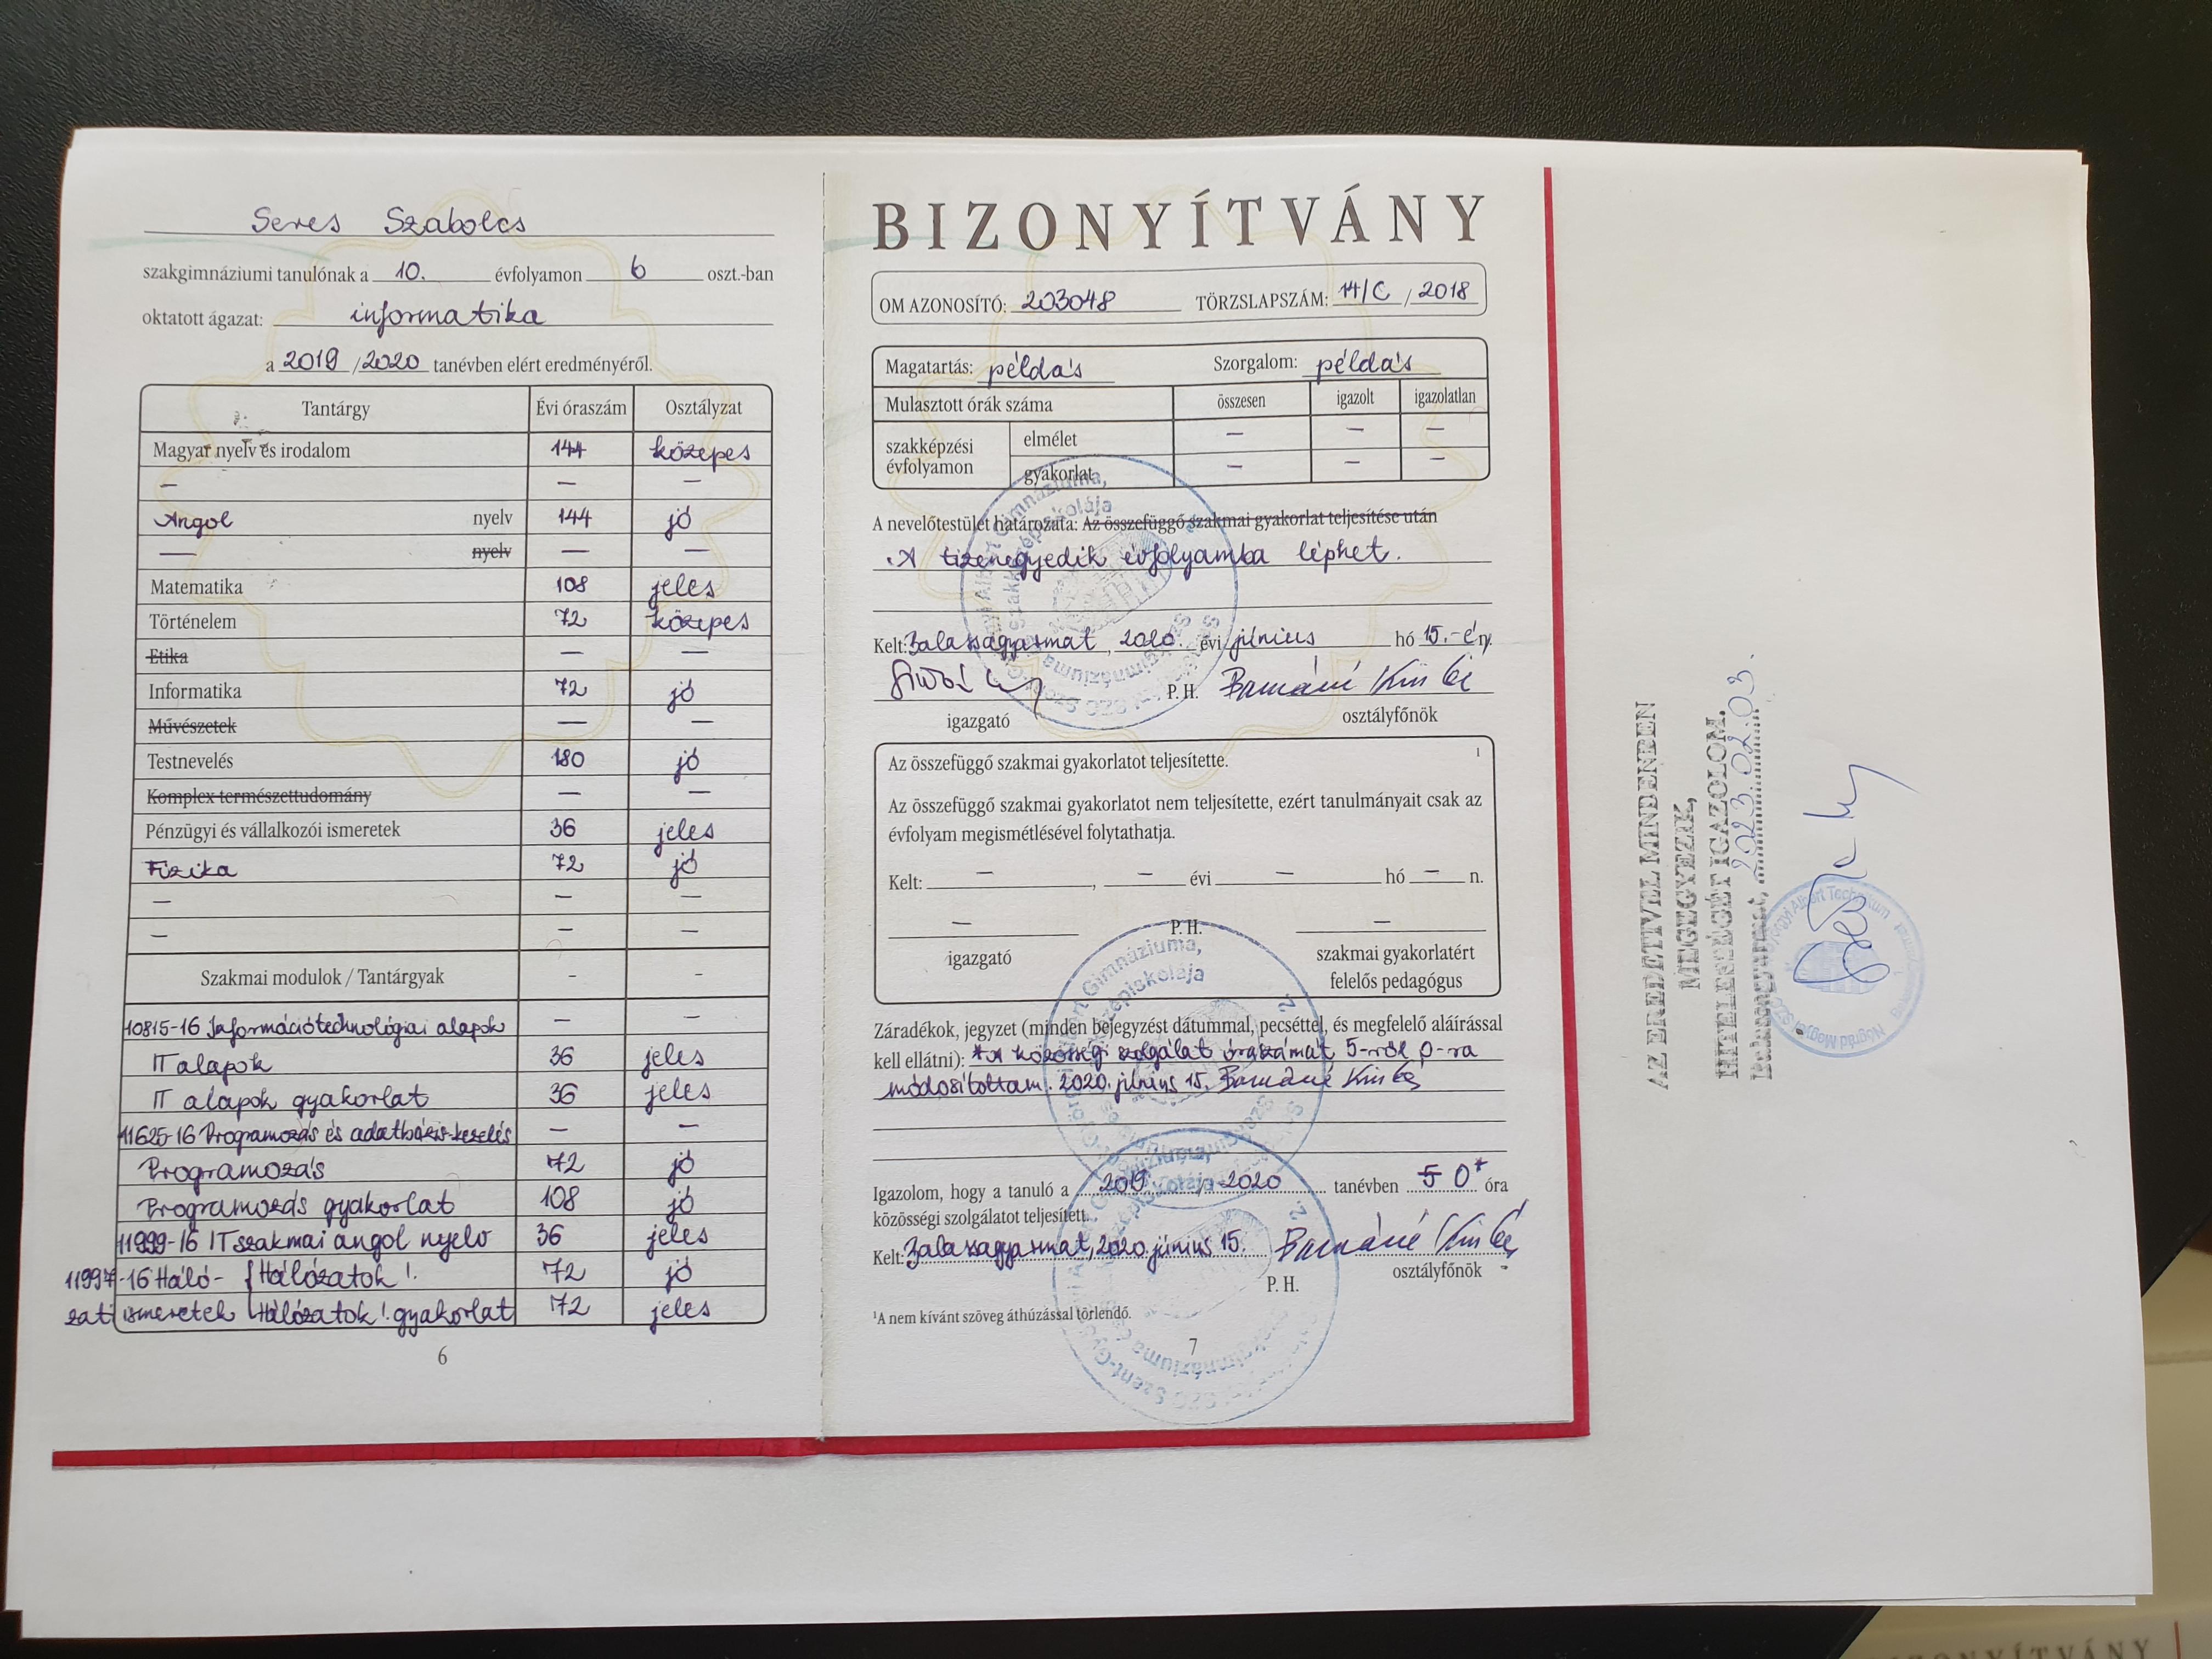 Seres Szabolcs
szakgimnáziumi tanulónak a 10. évfolyamon b oszt.-ban
oktatott ágazat: informatika
a 2019 /2020 tanévben elért eredményéről.
Tantárgy Évi óraszám Osztályzat
Magyar nyelv és irodalom 144 közepes
— — —
Angol nyelv 144 jó
— nyelv — —
Matematika 108 jeles
Történelem 72 közepes
Etika — —
Informatika 72 jó
Művészetek — —
Testnevelés 180 jó
Komplex természettudomány — —
Pénzügyi és vállalkozói ismeretek 36 jeles
Fizika 72 jó
— — —
— — —
Szakmai modulok / Tantárgyak - -
10815-16 Információtechnológiai alapok — —
IT alapok 36 jeles
IT alapok gyakorlat 36 jeles
11625-16 Programozás és adatbázis-kezelés — —
Programozás 72 jó
Programozás gyakorlat 108 jó
11999-16 IT szakmai angol nyelv 36 jeles
11997-16 Háló- Hálózatok I. 72 jó
zati ismeretek Hálózatok I. gyakorlat 72 jeles
6
BIZONYÍTVÁNY
OM AZONOSÍTÓ: 203048 TÖRZSLAPSZÁM: 14/C / 2018
Magatartás: példás Szorgalom: példás
Mulasztott órák száma összesen igazolt igazolatlan
szakképzési évfolyamon elmélet — — —
gyakorlat — — —
A nevelőtestület határozata: Az összefüggő szakmai gyakorlat teljesítése után
A tizenegyedik évfolyamba léphet.
Kelt: Balassagyarmat, 2020. évi június hó 15.-én.
P. H.
igazgató osztályfőnök
Az összefüggő szakmai gyakorlatot teljesítette. 1
Az összefüggő szakmai gyakorlatot nem teljesítette, ezért tanulmányait csak az
évfolyam megismétlésével folytathatja.
Kelt: — , — évi — hó — n.
— P. H. —
igazgató szakmai gyakorlatért
felelős pedagógus
Záradékok, jegyzet (minden bejegyzést dátummal, pecséttel, és megfelelő aláírással
kell ellátni): *A közösségi szolgálat óraszámát 5-ről 0-ra
módosítottam. 2020. június 15.
Igazolom, hogy a tanuló a 2019 -2020 tanévben 5 0* óra
közösségi szolgálatot teljesített.
Kelt: Balassagyarmat, 2020. június 15.
P. H. osztályfőnök
¹A nem kívánt szöveg áthúzással törlendő.
7
AZ EREDETIVEL MINDENBEN
MEGEGYEZIK,
HITELESSÉGÉT IGAZOLOM.
Balassagyarmat, 2023.02.03.
BIZONYÍTVÁNY